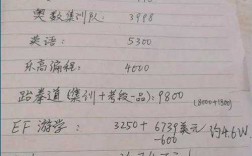 奥数集训队: 3998
英语: 5300
乐高编程: 4000
跆拳道(集训+考段一品): 9800 (8000+1800)
EF 游学: 3250+6739美元 约4.6W
-600